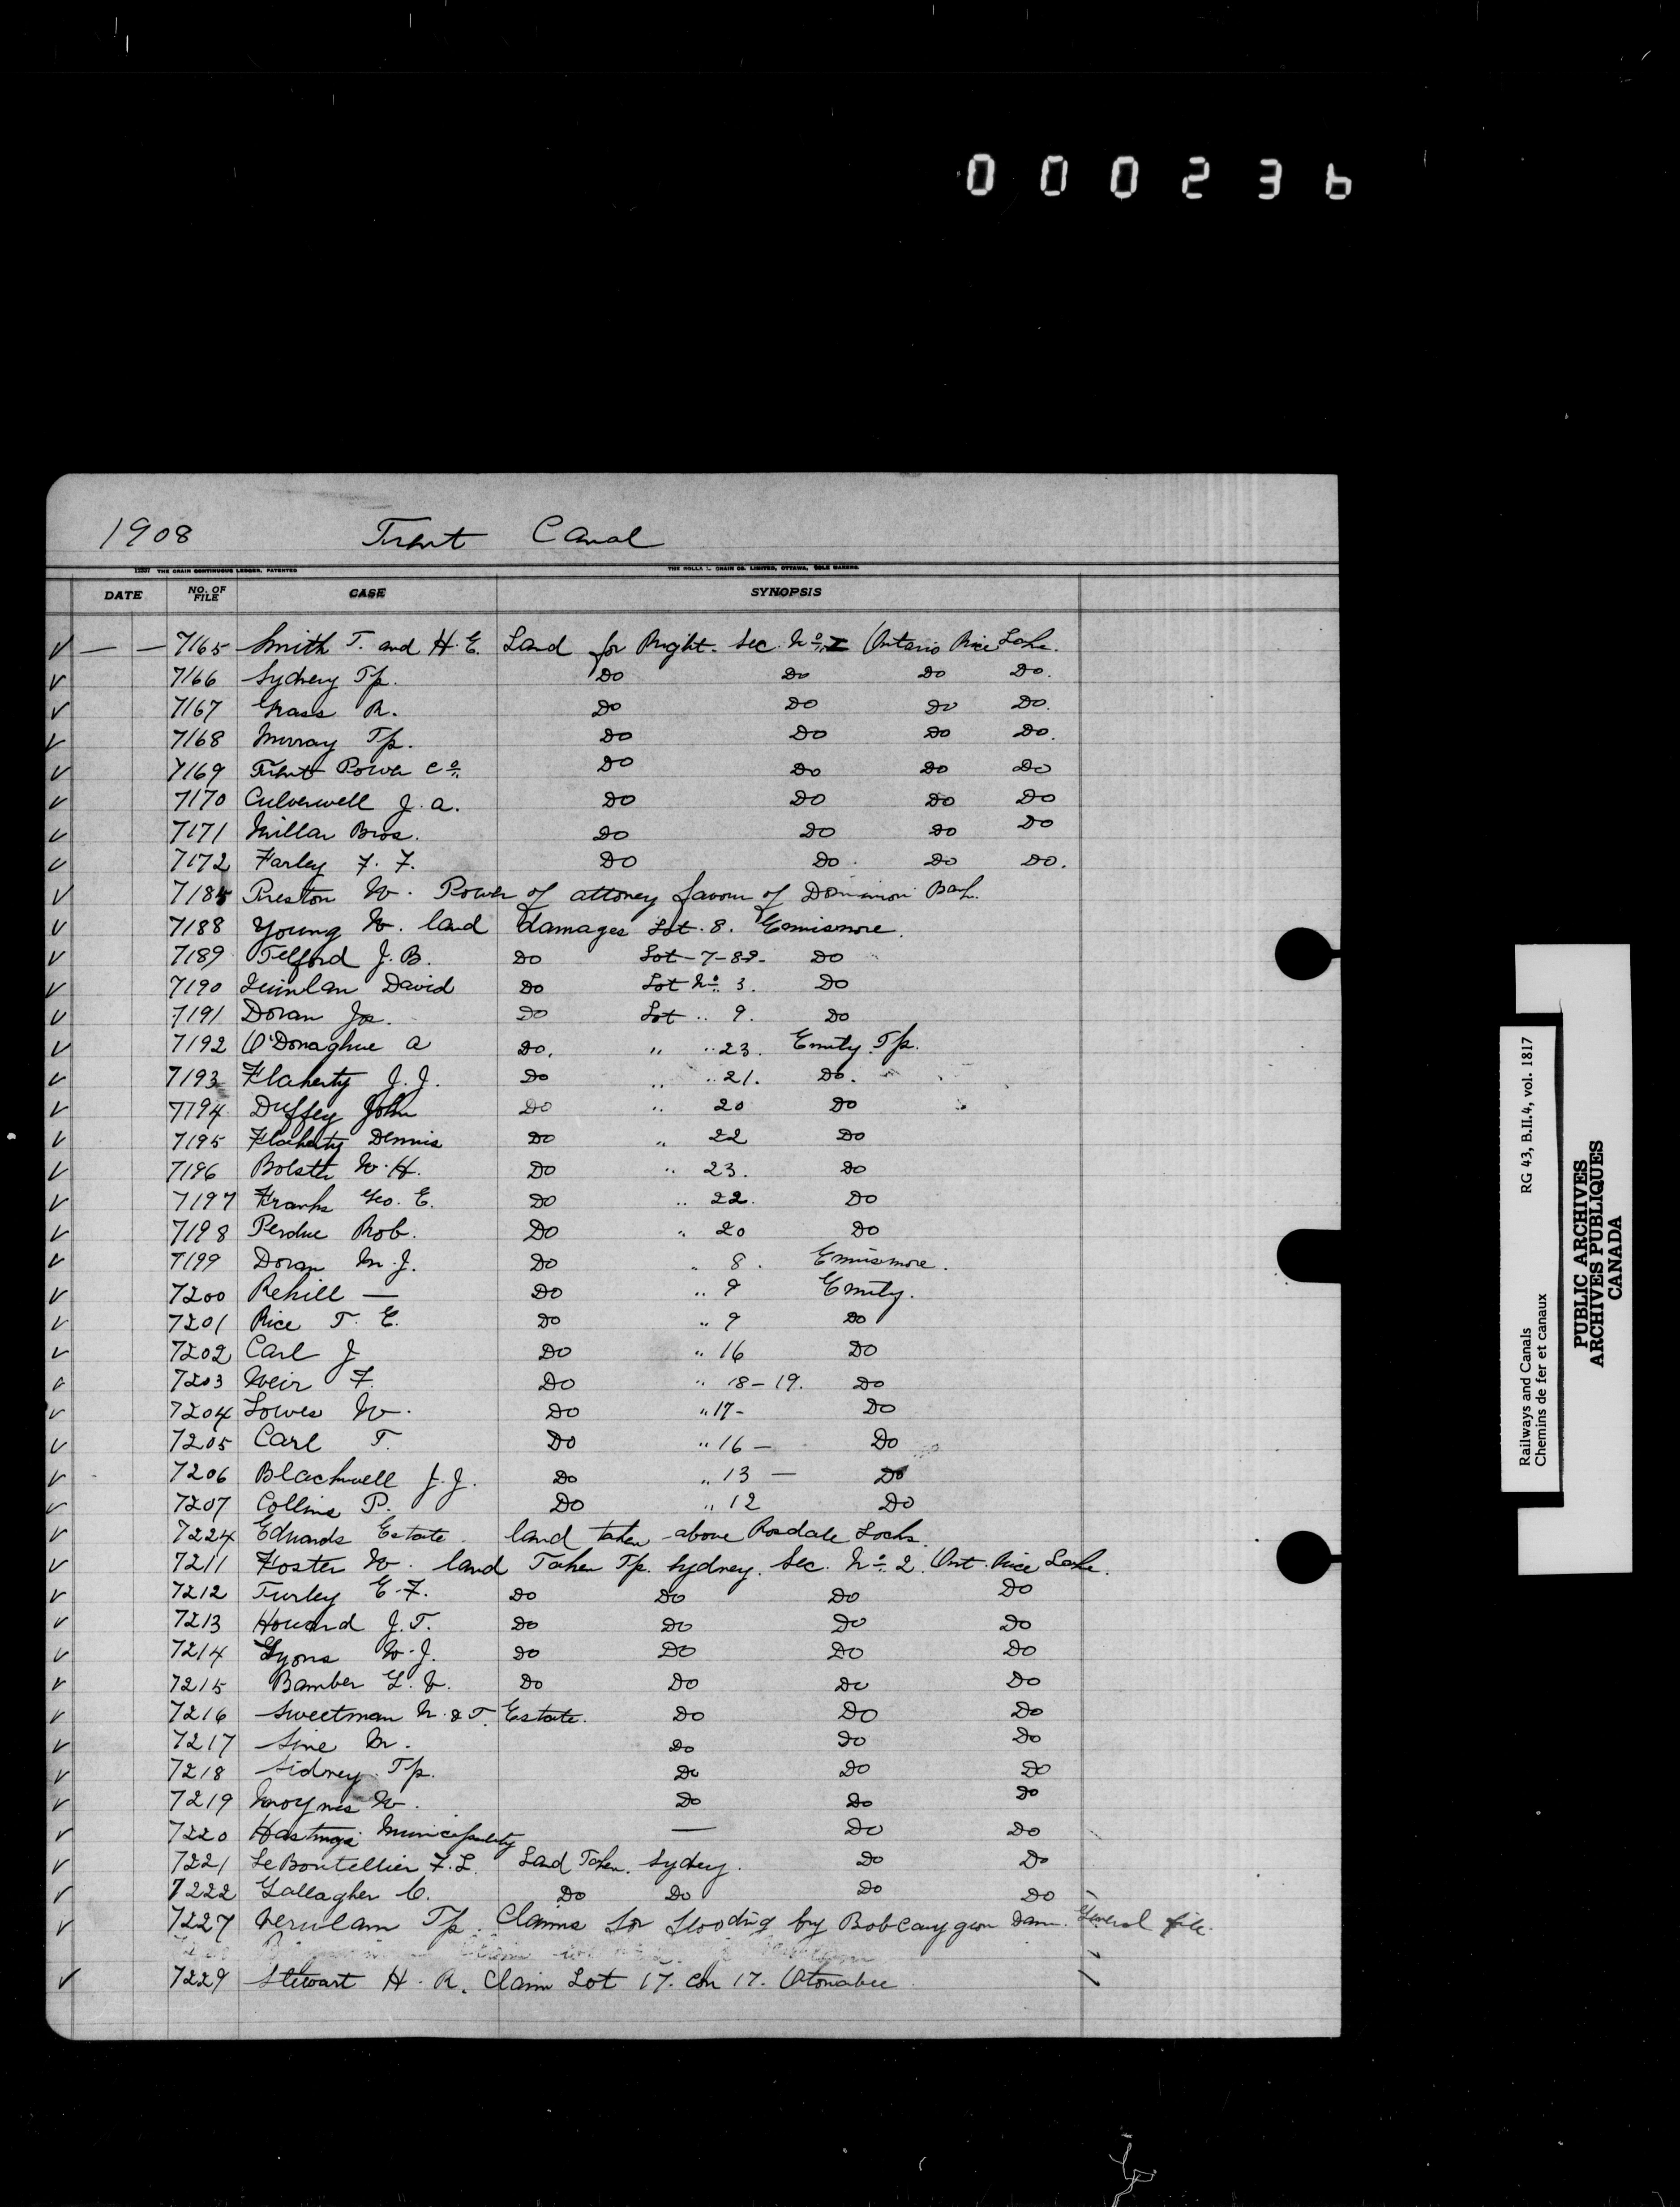 000236
1908 Trent Canal
12337 THE CHAIN CONTINUOUS LEDGER, PATENTED
DATE NO. OF FILE CASE SYNOPSIS
✓ — — 7165 Smith T. and H. E. Land for Right. Sec. No. 1 Ontario Rice Lake.
✓ 7166 Sydney Tp. Do Do Do Do.
✓ 7167 Grass R. Do Do Do Do.
✓ 7168 Murray Tp. Do Do Do Do.
✓ 7169 Trent Power Co. Do Do Do Do
✓ 7170 Culverwell J. A. Do Do Do Do
✓ 7171 Millar Bros. Do Do Do Do
✓ 7172 Farley F. F. Do Do. Do Do.
✓ 7185 Preston W. Power of attorney favour of Dominion Bank.
✓ 7188 Young W. land damages Lot. 8. Ennismore.
✓ 7189 Telford J. B. Do Lot-7-8 Do
✓ 7190 Quinlan David Do Lot No. 3. Do
✓ 7191 Doran Jos. Do Lot " 9. Do
✓ 7192 O'Donaghue A Do. " " 23. Emily Tp.
✓ 7193 Flaherty J. J. Do " " 21. Do.
✓ 7194 Duffey John Do " 20 Do
✓ 7195 Flaherty Dennis Do " 22 Do
✓ 7196 Bolster W. H. Do " 23. Do
✓ 7197 Franks Geo. E. Do " 22. Do
✓ 7198 Perdue Rob. Do " 20 Do
✓ 7199 Doran M. J. Do " 8. Ennismore.
✓ 7200 Rehill — Do " 9 Emily.
✓ 7201 Rice T. E. Do " 9 Do
✓ 7202 Carl J Do " 16 Do
✓ 7203 Weir F. Do " 18-19. Do
✓ 7204 Lowes W. Do " 17- Do
✓ 7205 Carl T. Do " 16 — Do
✓ 7206 Blackwell J. J. Do " 13 — Do
✓ 7207 Collins P. Do " 12 Do
✓ 7224 Edwards Estate. land taken above Rosdale Locks.
✓ 7211 Foster W. land Taken Tp. Sydney. Sec. No. 2. Ont. Rice Lake.
✓ 7212 Turley E. F. Do Do Do Do
✓ 7213 Howard J. T. Do Do Do Do
✓ 7214 Lyons W. J. Do Do Do Do
✓ 7215 Bamber Do Do Do Do
✓ 7216 Sweetman & T. Estate. Do Do Do
✓ 7217 Sine M. Do Do Do
✓ 7218 Sidney Tp. Do Do Do
✓ 7219 Moynes W. Do Do Do
✓ 7220 Hastings Municipality — Do Do
✓ 7221 LeBoutellier F. L. Land Taken. Sydney. Do Do
✓ 7222 Gallagher C. Do Do Do Do
✓ 7227 Verulam Tp. Claims for flooding by Bobcaygeon Dam. General file.
✓ 7229 Stewart H. R. Claim Lot 17. Con 17. Otonabee
Railways and Canals RG 43, B.II.4, vol. 1817
Chemins de fer et canaux
PUBLIC ARCHIVES
ARCHIVES PUBLIQUES
CANADA